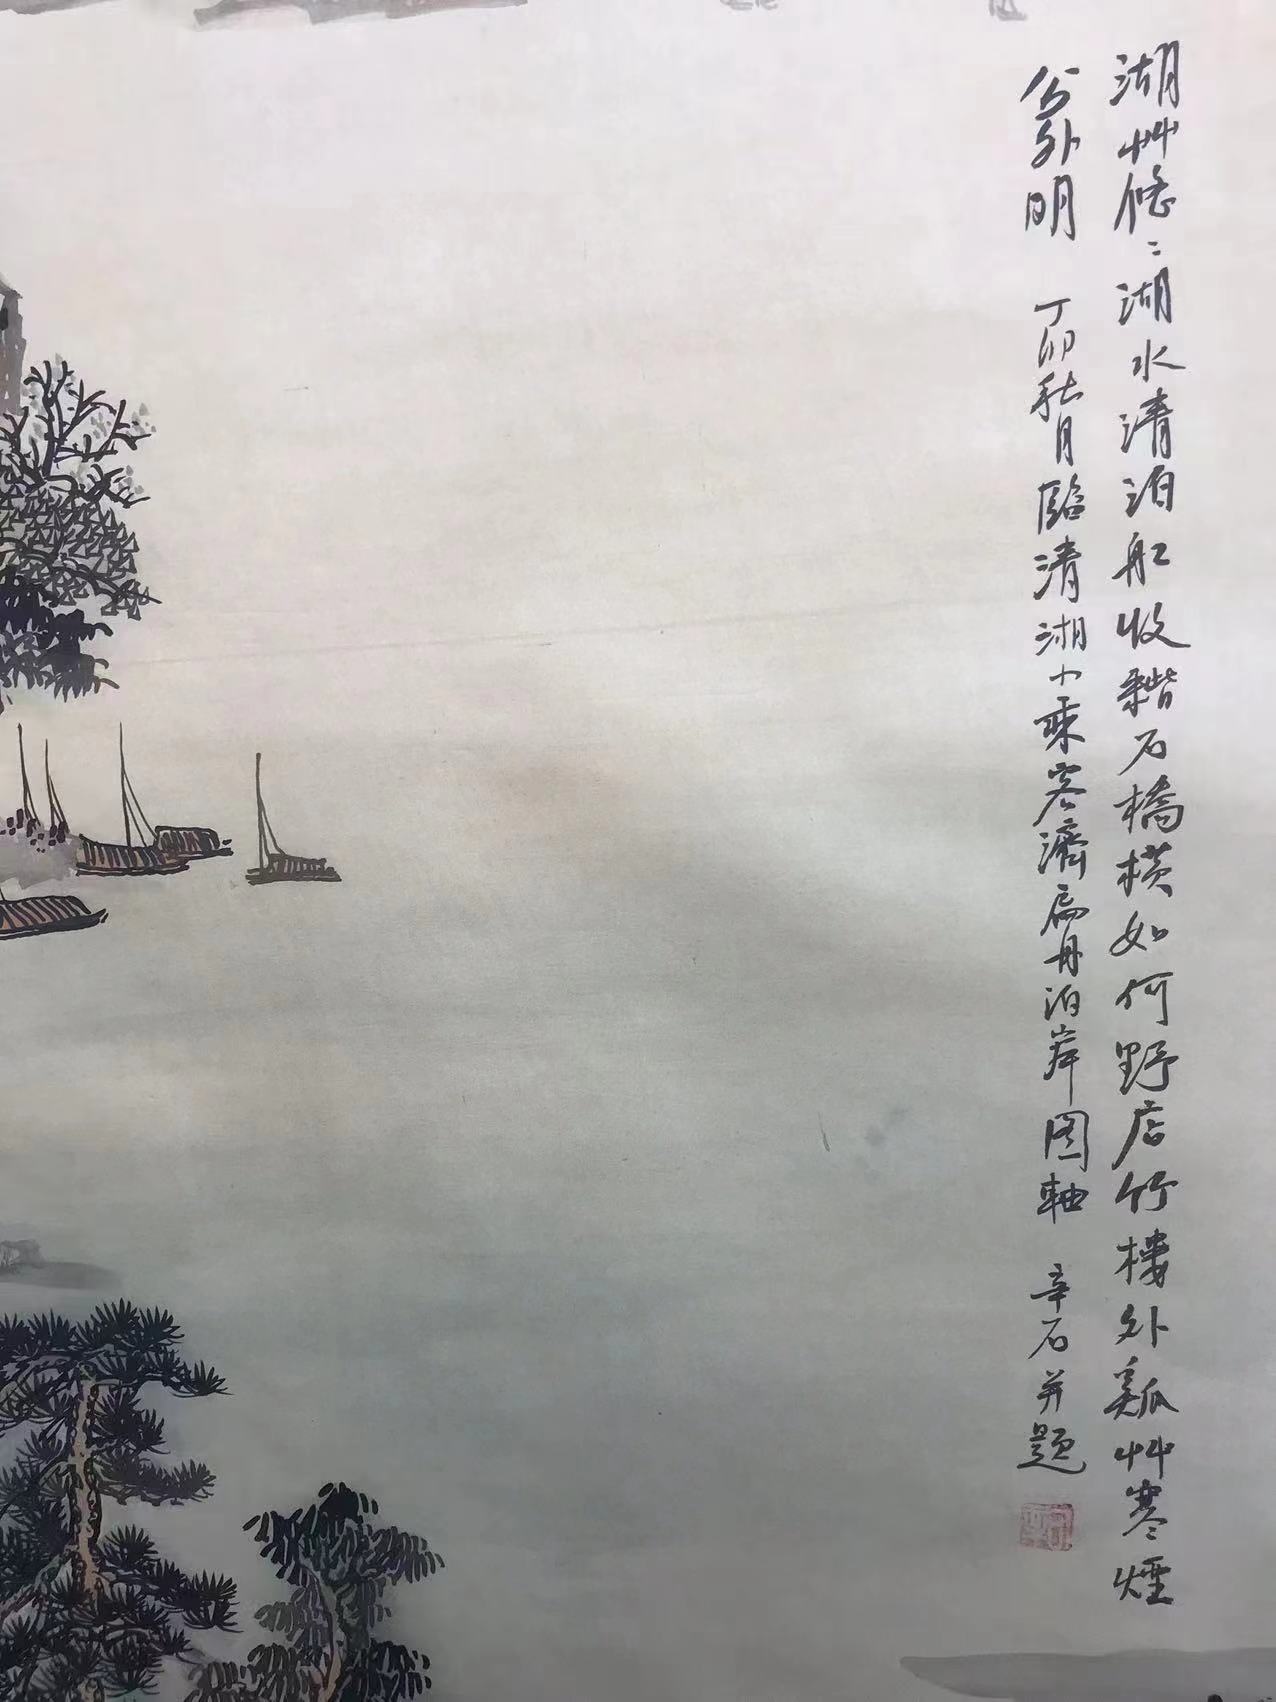 湖艸修〻湖水清泊舡收𦆯石橋横如何野店竹樓外亂艸寒煙
分外明　丁卯秋月臨清湘小乘客濟扁舟泊岸图軸　辛石并题